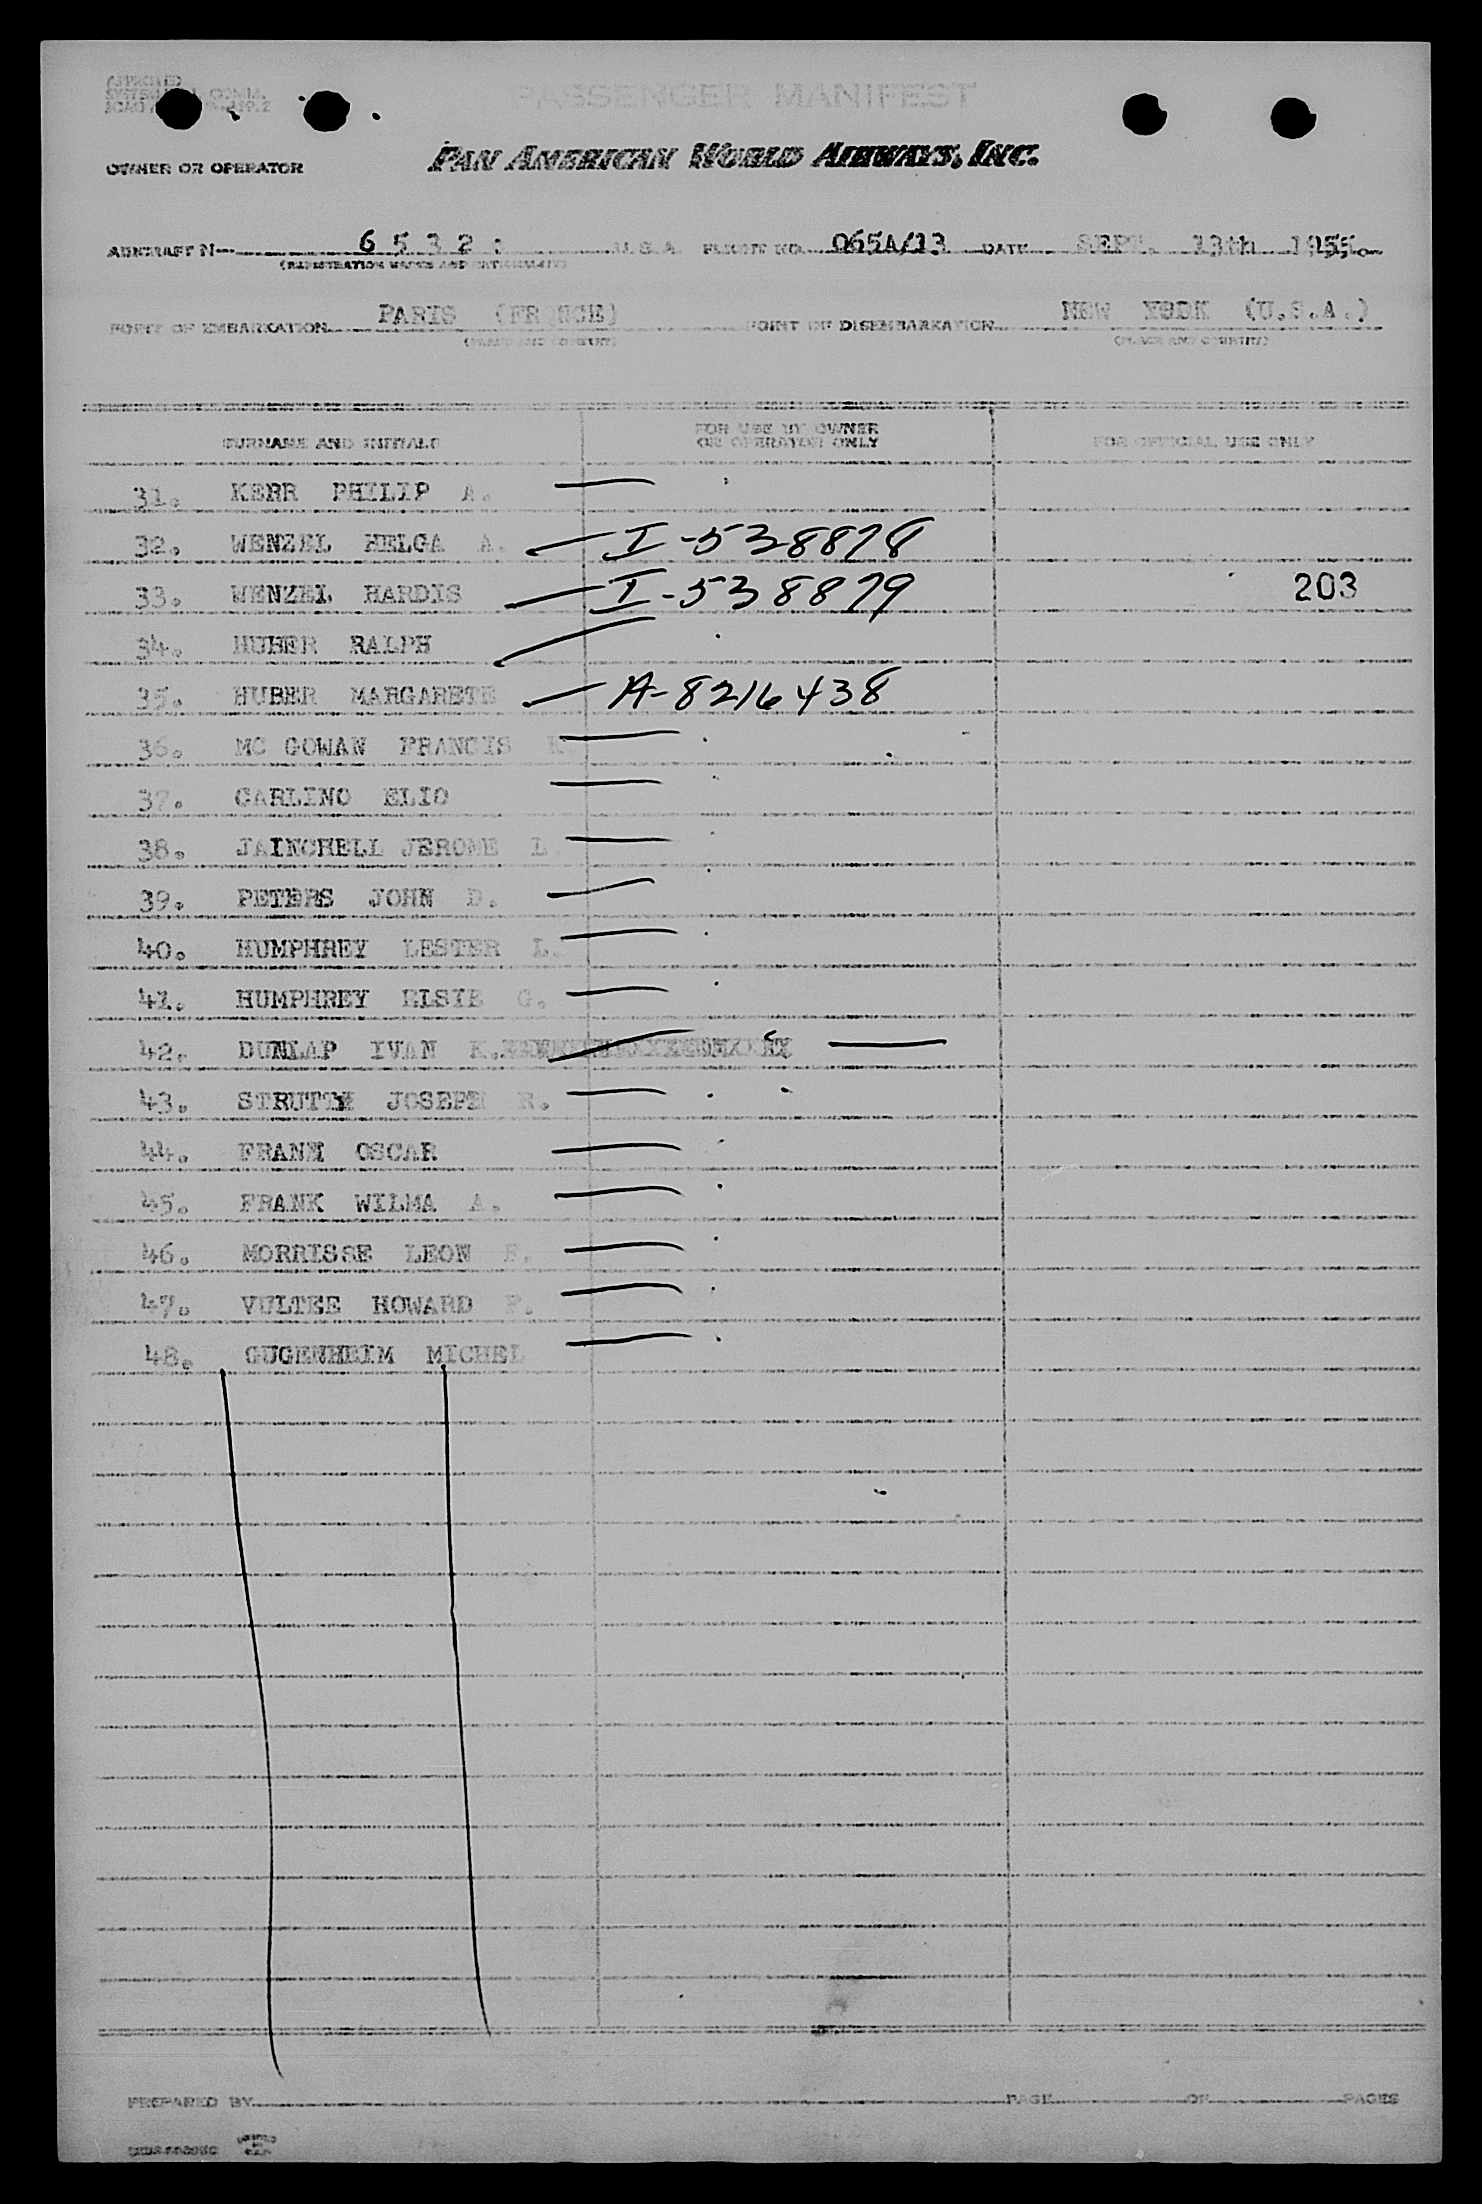 APPROVED
PASSENGER MANIFEST
OWNER OR OPERATOR PAN AMERICAN WORLD AIRWAYS, INC.
AIRCRAFT N— 6 5 3 2 : U.S.A. FLIGHT NO. 065A/13 DATE SEPT. 13th 1955.
(REGISTRATION MARKS AND NATIONALITY)
POINT OF EMBARKATION PARIS (FRANCE) POINT OF DISEMBARKATION NEW YORK (U.S.A.)
(PLACE AND COUNTRY) (PLACE AND COUNTRY)
SURNAME AND INITIALS FOR USE BY OWNER OR OPERATOR ONLY FOR OFFICIAL USE ONLY
31. KERR PHILIP A.
32. WENZEL HELGA A. I-538878
33. WENZEL HARDIS I-538879 203
34. HUBER RALPH
35. HUBER MARGARETE A-8216438
36. MC GOWAN FRANCIS
37. CARLINO ELIO
38. JAINCHELL JEROME L
39. PETERS JOHN D.
40. HUMPHREY LESTER L.
41. HUMPHREY ELSIE G.
42. DUNLAP IVAN K.
43. STRUTTY JOSEPH R.
44. FRANK OSCAR
45. FRANK WILMA A.
46. MORRISSE LEON F.
47. VULTEE HOWARD F.
48. GUGENHEIM MICHEL
PREPARED BY PAGE OF PAGES
PRINTED IN